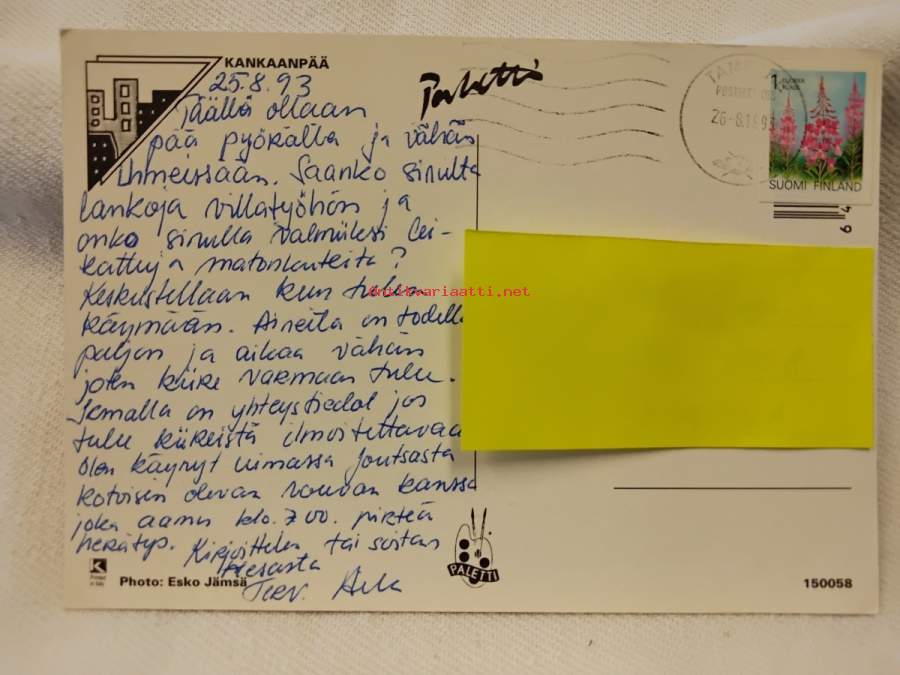 KANKAANPÄÄ
25.8.93
Täällä ollaan
pää pyörällä ja vähän
ihmeissään. Saanko sinulta
lankoja villatyöhön ja
onko sinulla valmiiksi lei-
kattuja matonkuteita?
Keskustellaan kun tulen
käymään. Aineita on todella
paljon ja aikaa vähän
joten kiire varmaan tulee.
Jemalla on yhteystiedot jos
tulee kiireistä ilmoitettavaa
Olen käynyt uimassa Joutsasta
kotoisin olevan rouvan kanssa
joka aamu klo. 7.00. pirteä
herätys. Kirjoittelen tai soitan
Terv.
Paletti
TAMPERE
26-8.1993
1
SUOMI FINLAND
antikvariaatti.net
PALETTI
K
Printed
in Italy
Photo: Esko Jämsä
150058